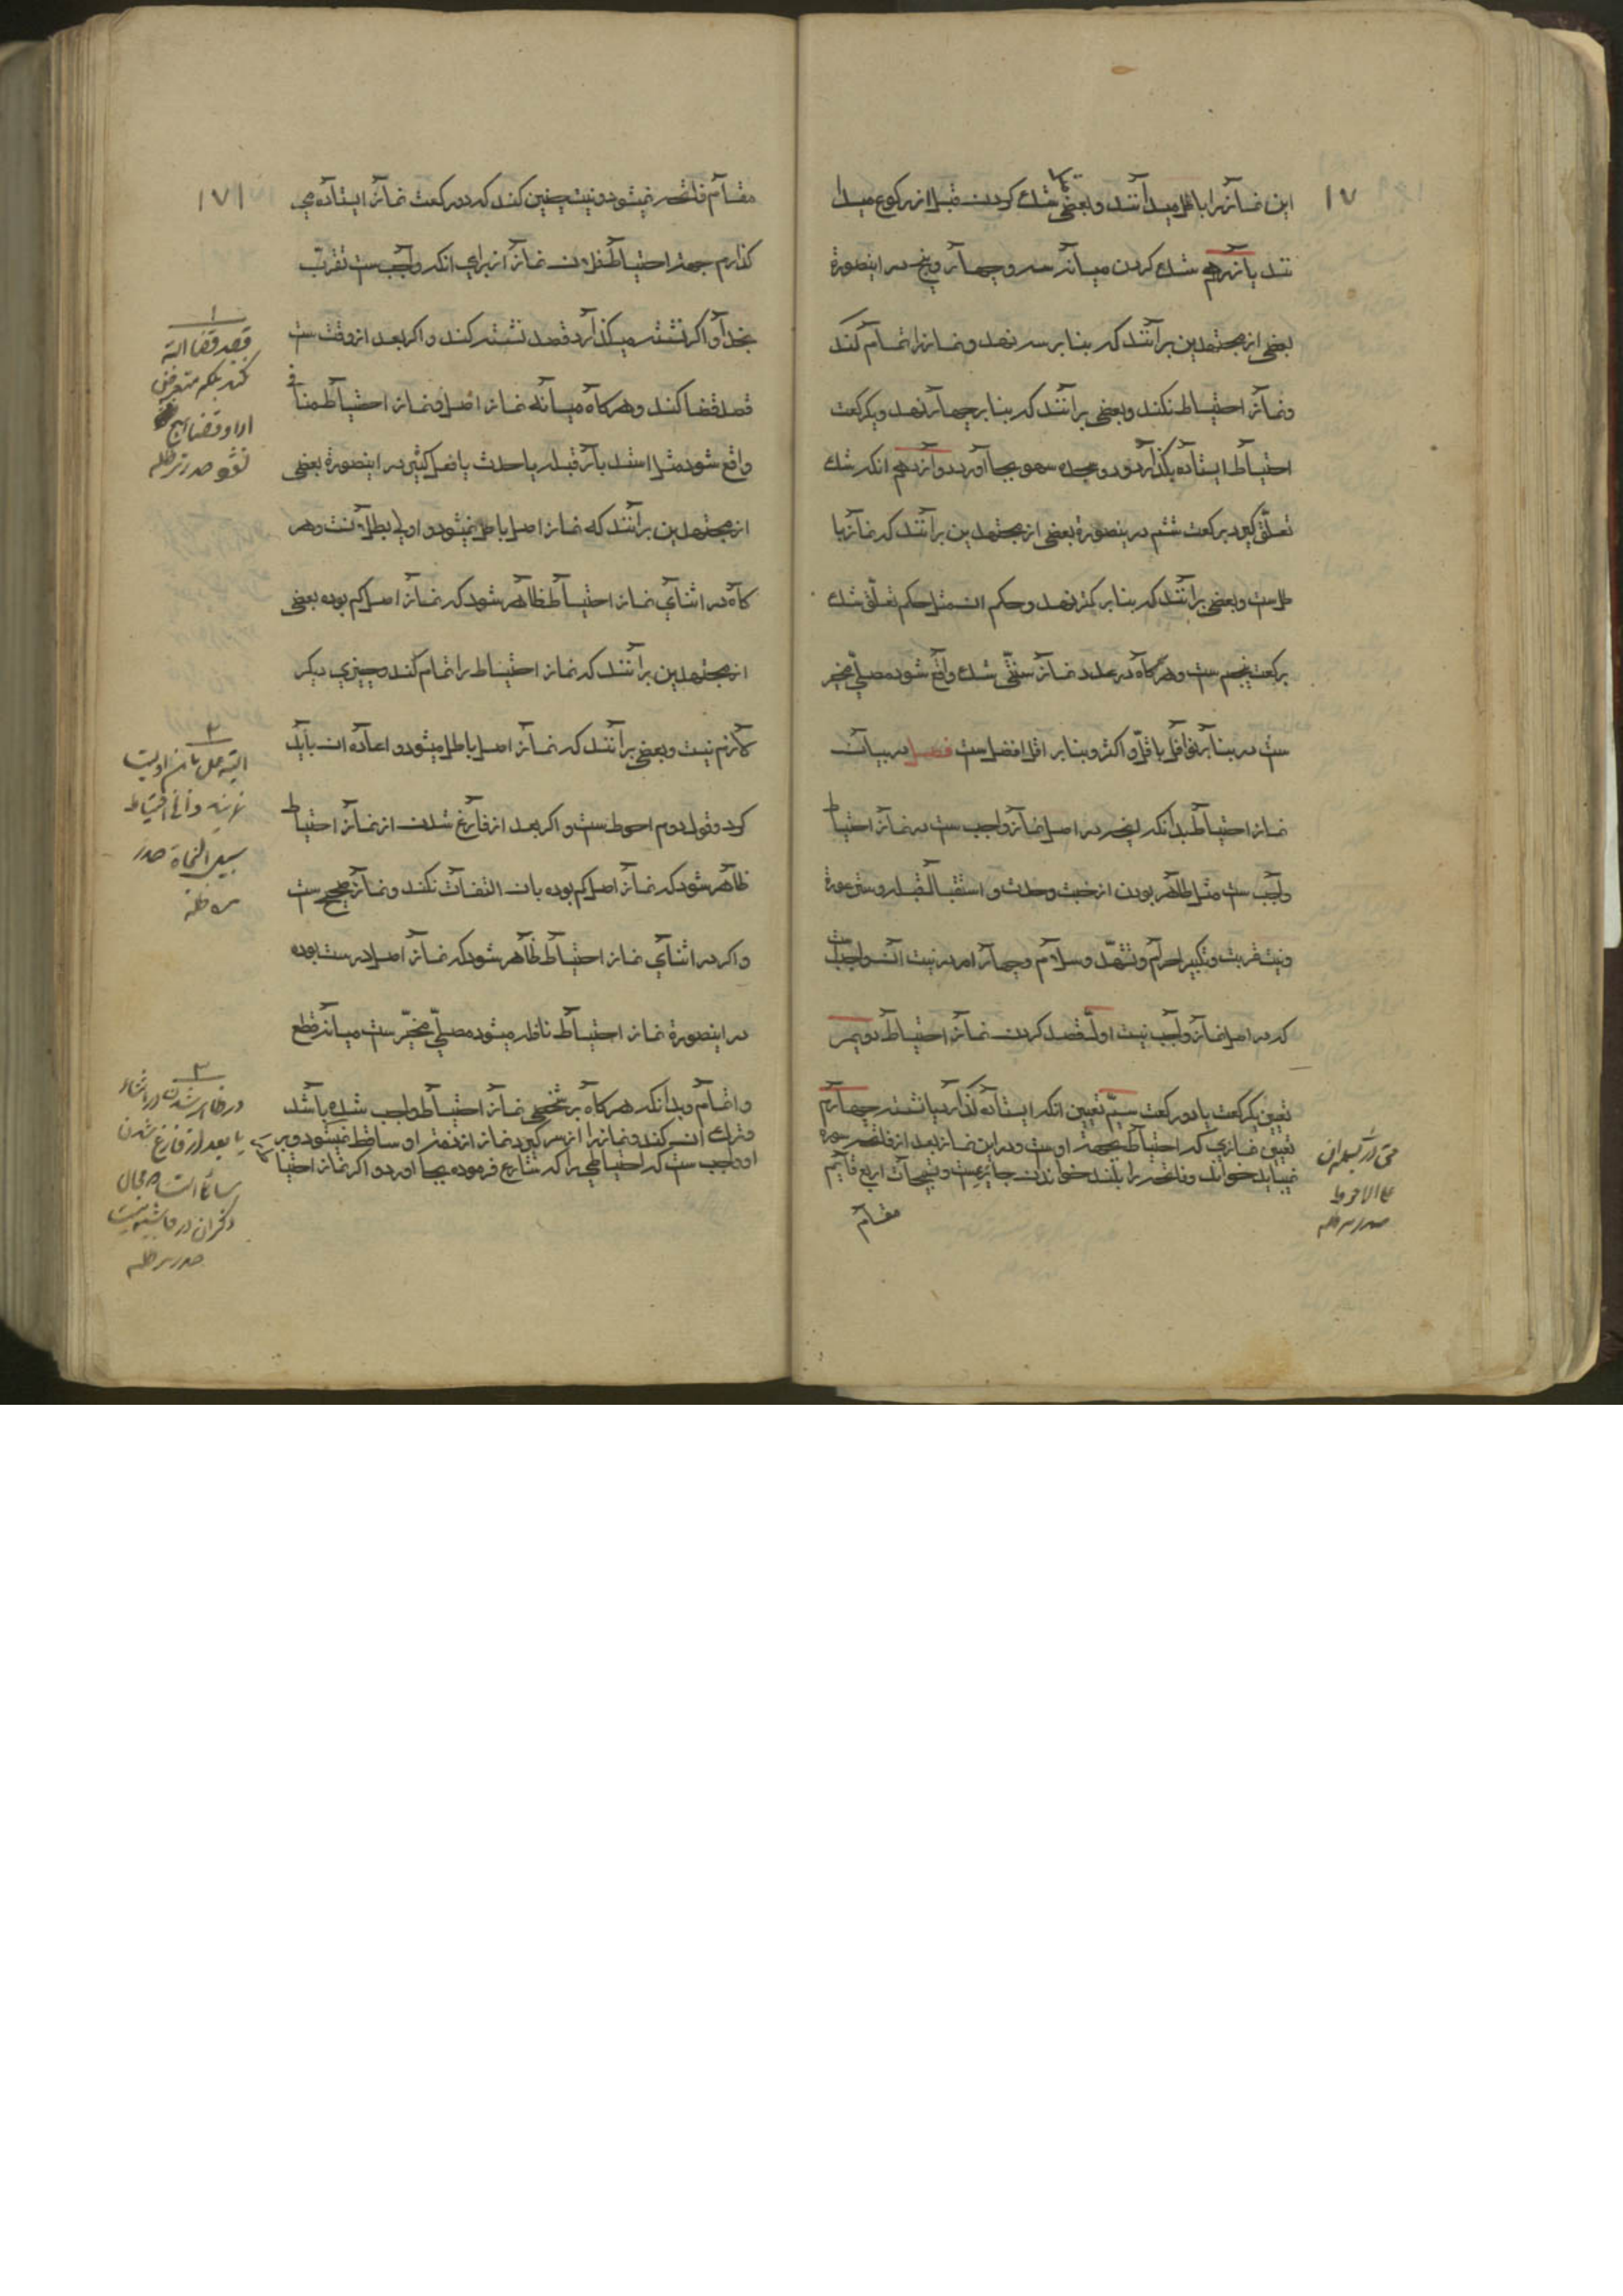 ۱۷
این نمازرا باطل میدانند و بعضی شك کردن قبل از رکوع میدا
نند یازدهم شك کردن میانه سه و چهار و پنج در اینصورة
بعضی از مجتهدین برآنند که بنا بر سه نهد و نماز را تمام کند
و نماز احتیاط نکند و بعضی برآنند که بنا بر چهار نهد و یکرکعت
احتیاط ایستاده بگذارد و دو سجده سهو بجا آورد دوازدهم انکه شك
تعلّق گیرد برکعت ششم درینصورة بعضی از مجتهدین برآنند که نماز با
طل ست و بعضی برآنند که بنا بر کمتر نهد و حکم ان مثل حکم تعلّق شك
برکعت پنجم ست و هرگاه در عدد نماز سنّتی شك واقع شود مصلّی مخیر
ست در بنا بر اقل یا اکثر و بنا بر اقل افضل ست فصل در بیان
نماز احتیاط بدانکه انچه در اصل نماز واجب ست در نماز احتیاط
واجب ست مثل طاهر بودن از خبث و حدث و استقبال قبله و ستر عورة
و نیت قربت و تکبیر احرام و تشهّد و سلام و چهار امر در نیت آن واجبست
که در اصل نماز واجب نیست اوّل قصد کردن نماز احتیاط دویم
تعیین یکرکعت یا دو رکعت سیّم تعیین انکه ایستاده گذارد یا نشسته چهارم
تعیین نمازی که احتیاط بجهة اوست و در این نماز بعد از فاتحه سوره
نمیباید خواند و فاتحه را بلند خواندن جایز نیست و تسبیحات اربع قایم
مقام
علی الاحوط
صدر مد ظله
۱۷۱
مقام فاتحه نمیشود و نیت چنین کند که دو رکعت نماز ایستاده می
گذارم جهة احتیاط فلان نماز از برای انکه واجب ست تقرّب
بخدا و اگر نشسته میگذارد قصد نشسته کند و اگر بعد از وقت ست
قصد قضا کند و هرگاه میانه نماز اصل و نماز احتیاط منافی
واقع شود مثل استدبار قبله یا حدث یا فعل کثیر در اینصورة بعضی
از مجتهدین برآنند که نماز اصل باطل نمیشود و اولی بطلانست و هر
گاه در اثنای نماز احتیاط ظاهر شود که نماز اصل کم بوده بعضی
از مجتهدین برآنند که نماز احتیاط را تمام کند و چیزی دیگر
لازم نیست و بعضی برآنند که نماز اصل باطل میشود و اعاده ان باید
کرد و قول دوم احوط ست و اگر بعد از فارغ شدن از نماز احتیاط
ظاهر شود که نماز اصل کم بوده بان التفات نکند و نماز صحیح ست
و اگر در اثنای نماز احتیاط ظاهر شود که نماز اصل درست بوده
در اینصورة نماز احتیاط نافله میشود مصلّی مخیّر ست میانه قطع
و اتمام و بدانکه هرگاه بر شخصی نماز احتیاط واجب شده باشد
و ترك ان کند و نماز را از سر گیرد نماز از ذمّه او ساقط نمیشود و بر
او واجب ست که احتیاطی را که شارع فرموده بجا اورد و اگر نماز احتیاط
۱
قصد قضا البته
نکند بلکه متعرض
ادا و قضا هیچ
نشود صدر مد ظله
۲
سبیل النجاة صدر
مد ظله
۳
در ظاهر شدن در اثناء
یا بعد از فارغ شدن
ذکر ان در حاشیه نیست
صدر مد ظله